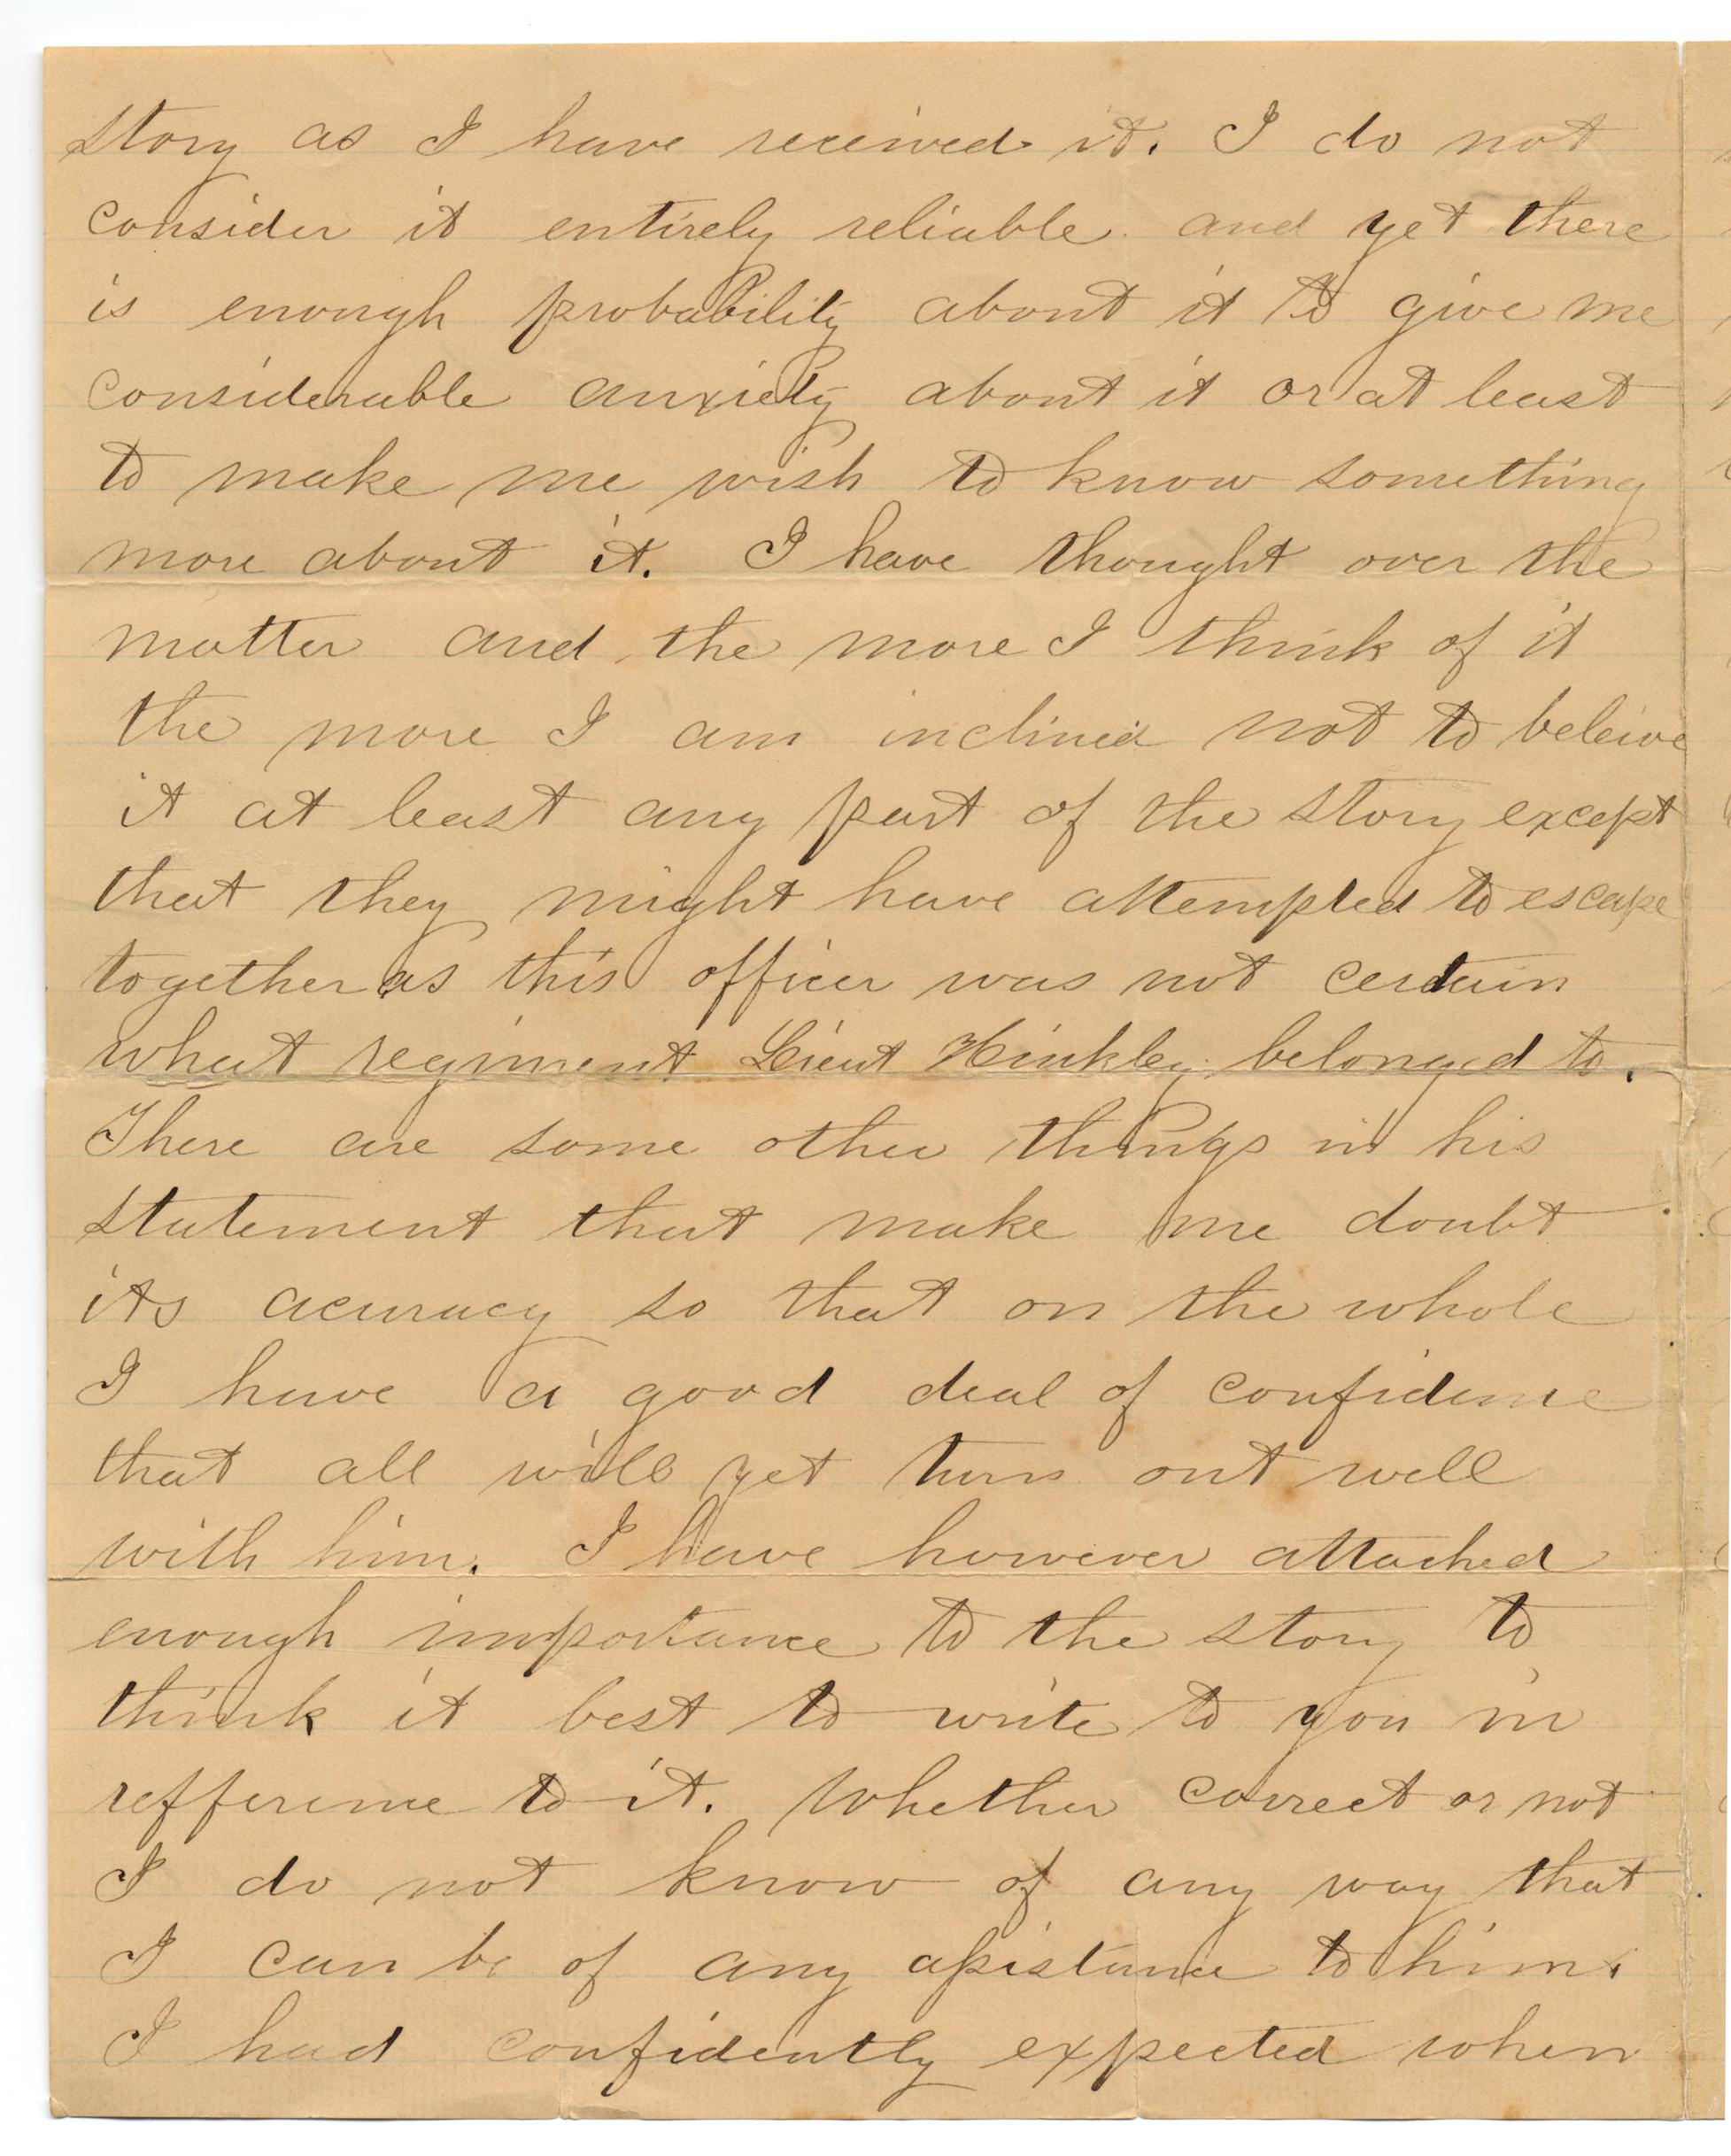 story as I have received it. I do not
consider it entirely reliable and yet there
is enough probability about it to give me
considerable anxiety about it or at least
to make me wish to know something
more about it. I have thought over the
matter and the more I think of it
the more I am inclined not to beleive
it at least any part of the story except
that they might have attempted to escape
together as this officer was not certain
what regiment Lieut Hinkley belonged to.
There are some other things in his
statement that make me doubt
its acuracy so that on the whole
I have a good deal of confidence
that all will yet turn out well
with him. I have however attached
enough importance to the story to
think it best to write to you in
refference to it. Whether correct or not
I do not know of any way that
I can be of any assistance to him.
I had confidently expected when